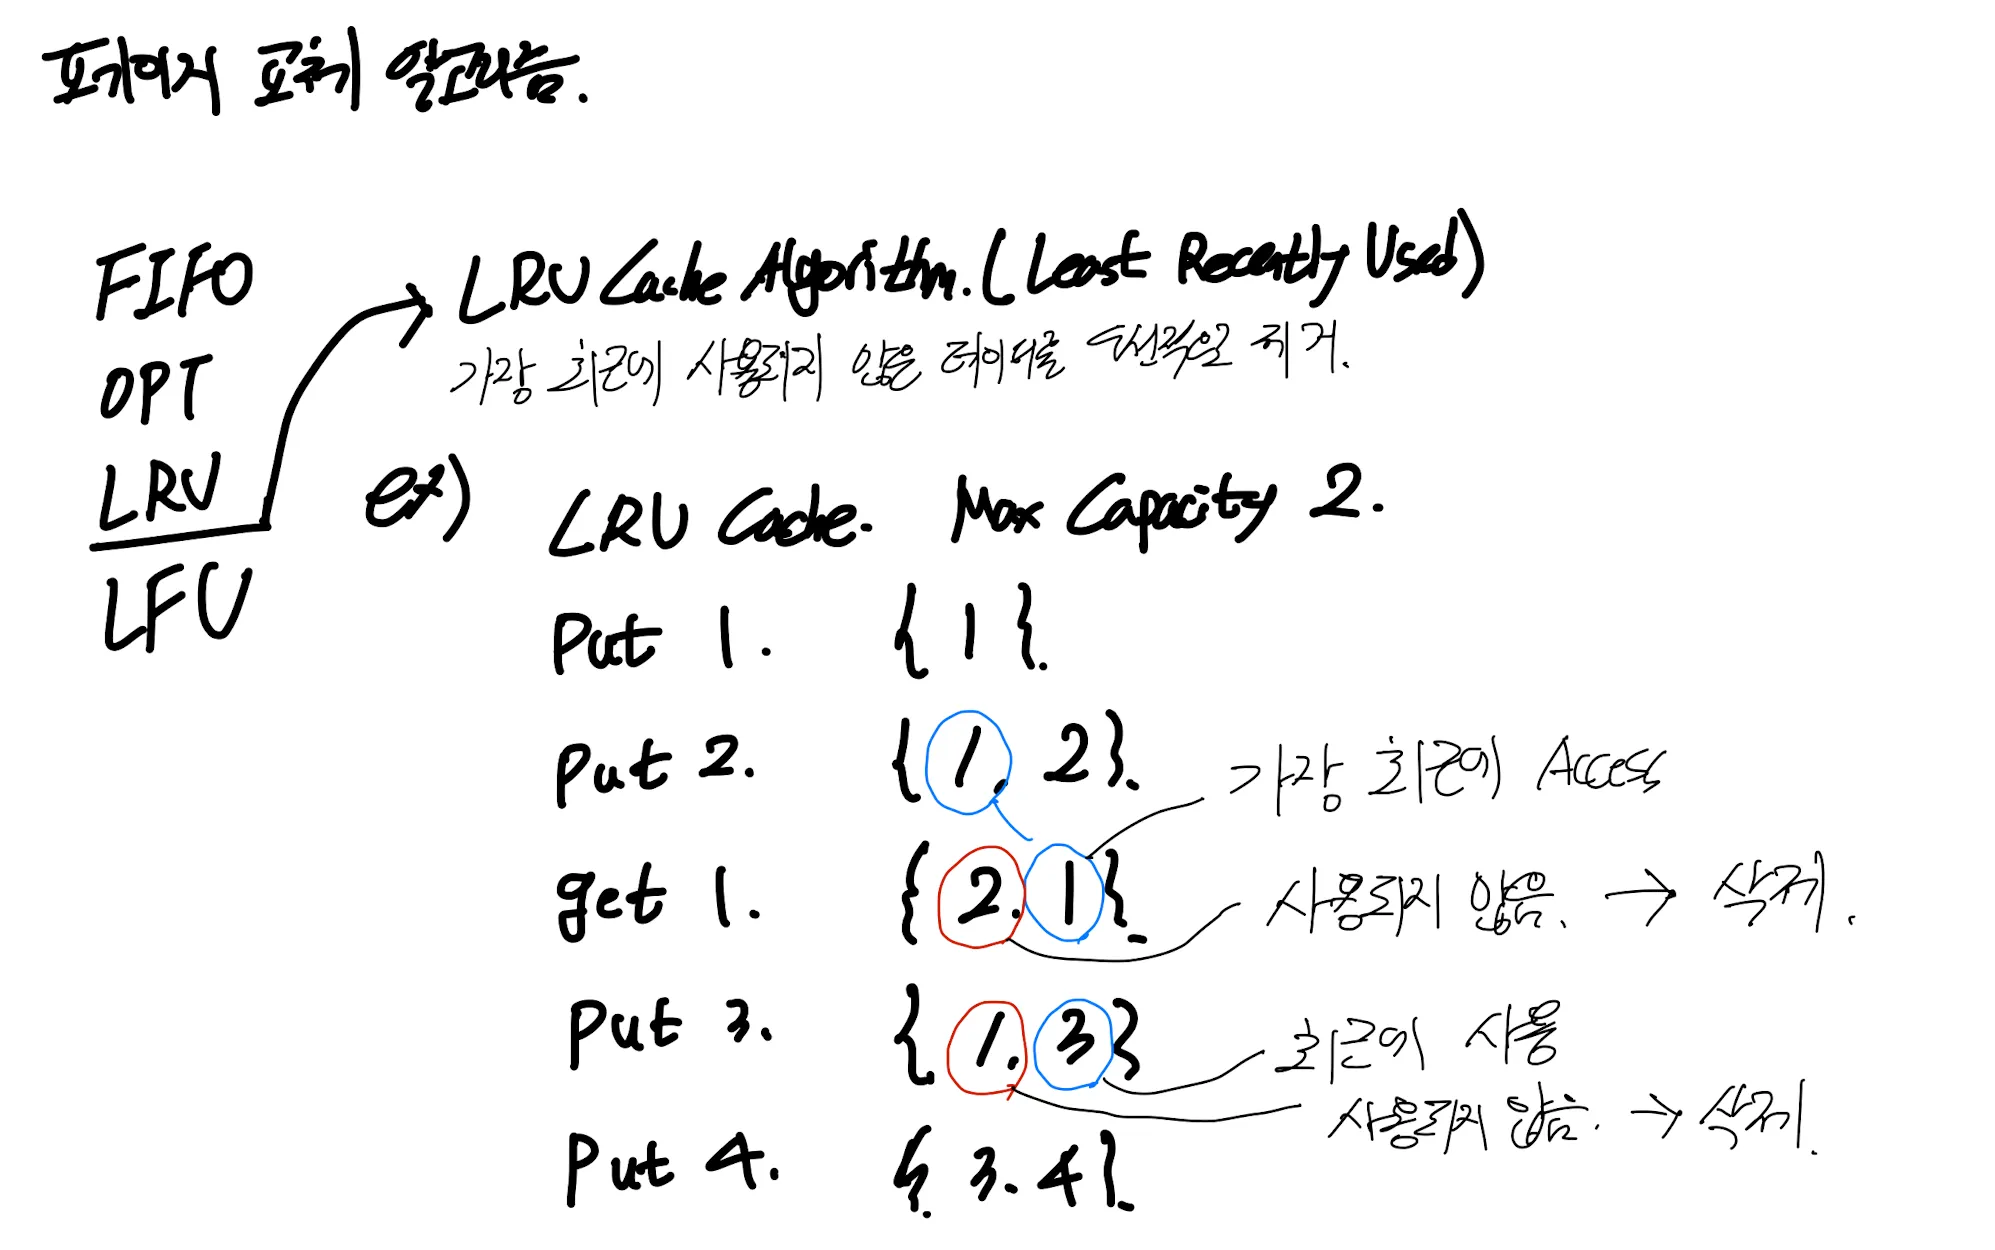 페이지 교체 알고리즘.
FIFO
OPT
LRU
LFU
LRU Cache Algorithm. (Least Recently Used)
가장 최근에 사용되지 않은 데이터를 우선적으로 제거.
ex)
LRU Cache. Max Capacity 2.
Put 1. { 1 }.
Put 2. { 1. 2 }.
가장 최근에 Access
get 1. { 2. 1 }.
사용되지 않음. → 삭제.
Put 3. { 1. 3 }
최근에 사용
사용되지 않음. → 삭제.
Put 4. { 3. 4 }.